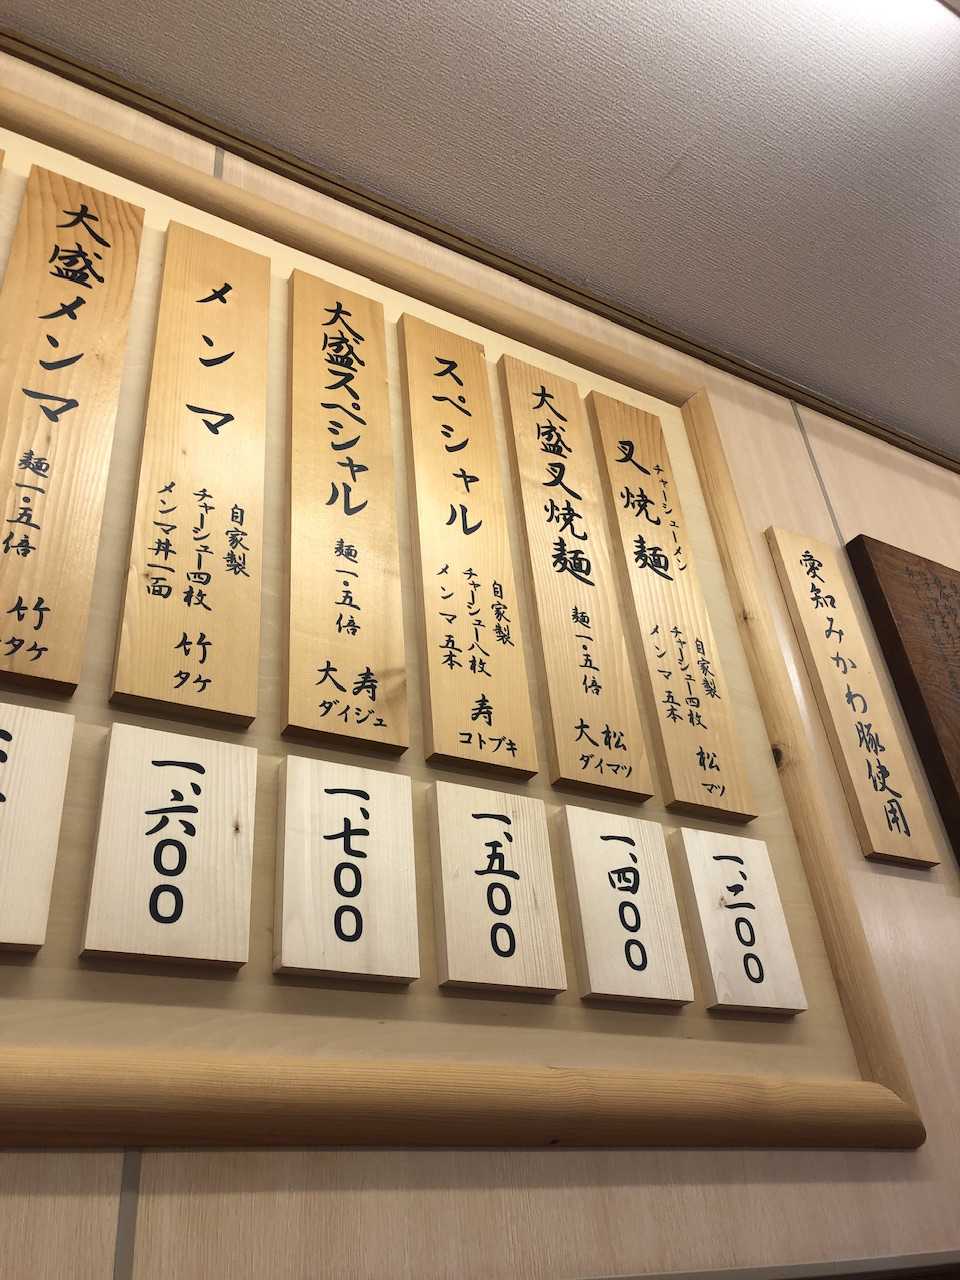 愛知みかわ豚使用
叉焼麺
チャーシューメン
自家製
チャーシュー四枚
メンマ五本
松
マツ
一、二００
大盛叉焼麺
麺一・五倍
大松
ダイマツ
一、四００
スペシャル
自家製
チャーシュー八枚
メンマ五本
寿
コトブキ
一、五００
大盛スペシャル
麺一・五倍
大寿
ダイジュ
一、七００
メンマ
自家製
チャーシュー四枚
メンマ丼一面
竹
タケ
一、六００
大盛メンマ
麺一・五倍
竹
タケ